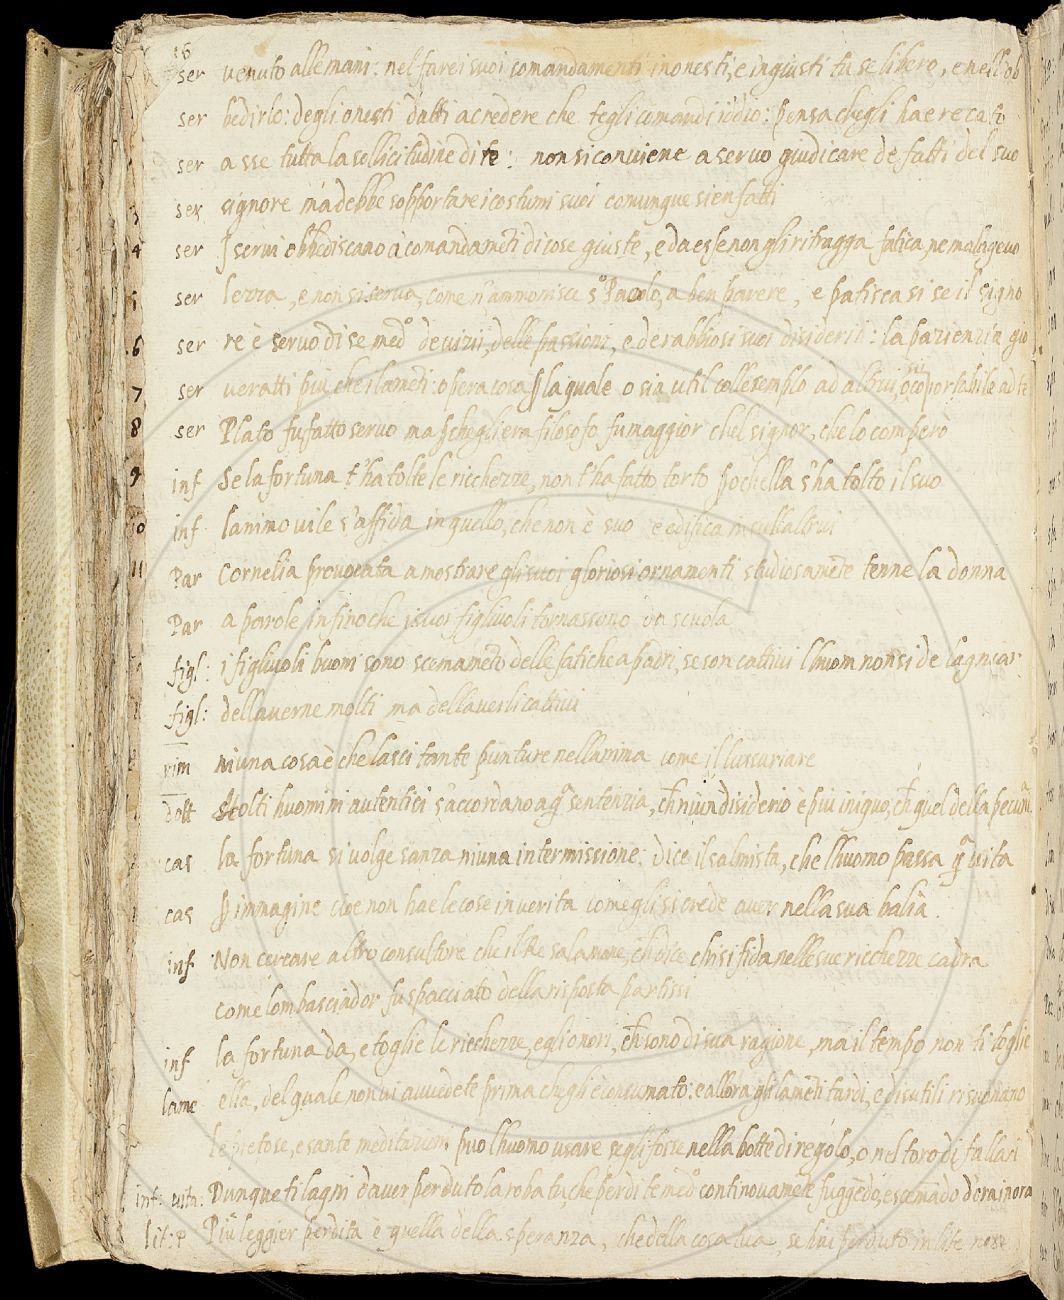 16
ser venuto alle mani: nel fare i suoi comandamenti inonesti, e ingiusti tu se libero, e nell ob
ser bedirlo: degli onesti datti a credere che te gli comandi iddio: pensa chegli ha erecato
ser a sse tutta la sollicitudine di te: non si conviene a servo giudicare de fatti del suo
3 ser signore ma debbe sopportare i costumi suoi comunque sien fatti
4 ser I servi obbediscano a comandamēti di cose giuste, e da esse non gli ritragga fatica, ne malagevo
5 ser lezza, e non si serva, come n'ammonisce s.º Paolo, a ben parere, e patisca si se il signo
6 ser re è servo di se medº de vizii, delle passioni, e de rabbiosi suoi disiderii: la pazienzia gio
7 ser veratti più che ilamēti: opera cosa la quale o sia util collesemplo ad altrui, o comportabile ad te
8 ser Plato fu fatto servo ma pchegliera filosofo, fu maggior chel signor, che lo comperò
9 inf Se la fortuna t'ha tolte le ricchezze, non t'ha fatto torto pochella s'ha tolto il suo
10 inf lanimo vile s'affida in quello, che non è suo e edifica in sullaltrui
11 Par Cornelia provocata a mostrare gli suoi gloriosi ornamenti studiosamēte tenne la donna
Par a parole infinoche i suoi figliuoli tornassono da scuola
figl: i figliuoli buoni sono scemamēto delle fatiche a padri, se son cattivi lhuom non si de lagniar
figl: dellaverne molti ma dellaverli cattivi
niuna cosa è che lasci tante punture nellanima come il lussuriare
dott Molti huomini autentici s'accordano a qª sentenzia, ch niun disiderio è piu iniquo, ch quel della pecunia
cas la fortuna si volge sanza niuna intermissione: dice il salmista, che lhuomo passa qª vita
cas p immagine cioe non hae le cose in verita come gli si crede aver nella sua balia.
inf Non cercare altro consultore che il Re salamone, ch dice chi si fida nelle sue ricchezze cadra
come lombasciador fu spacciato della risposta partissi
inf la fortuna da, e toglie le ricchezze, e gli onori, ch sono di sua ragione, ma il tempo non ti toglie
lame ella, del quale non vi avvedete prima chegli è consumato: e allora gli lamēti tardi, e disutili risuonano
le pietose, e sante meditazioni puo lhuomo usare segli fosse nella botte di regolo, o nel toro di fallari
inf: vita: Dunque ti lagni daver perduto la roba tu, che perdi te medº continovamēte fuggēdo, e scemādo dora in ora
lit: P Più leggier perdita è quella della speranza, che della cosa tua, se hai perduto in lite